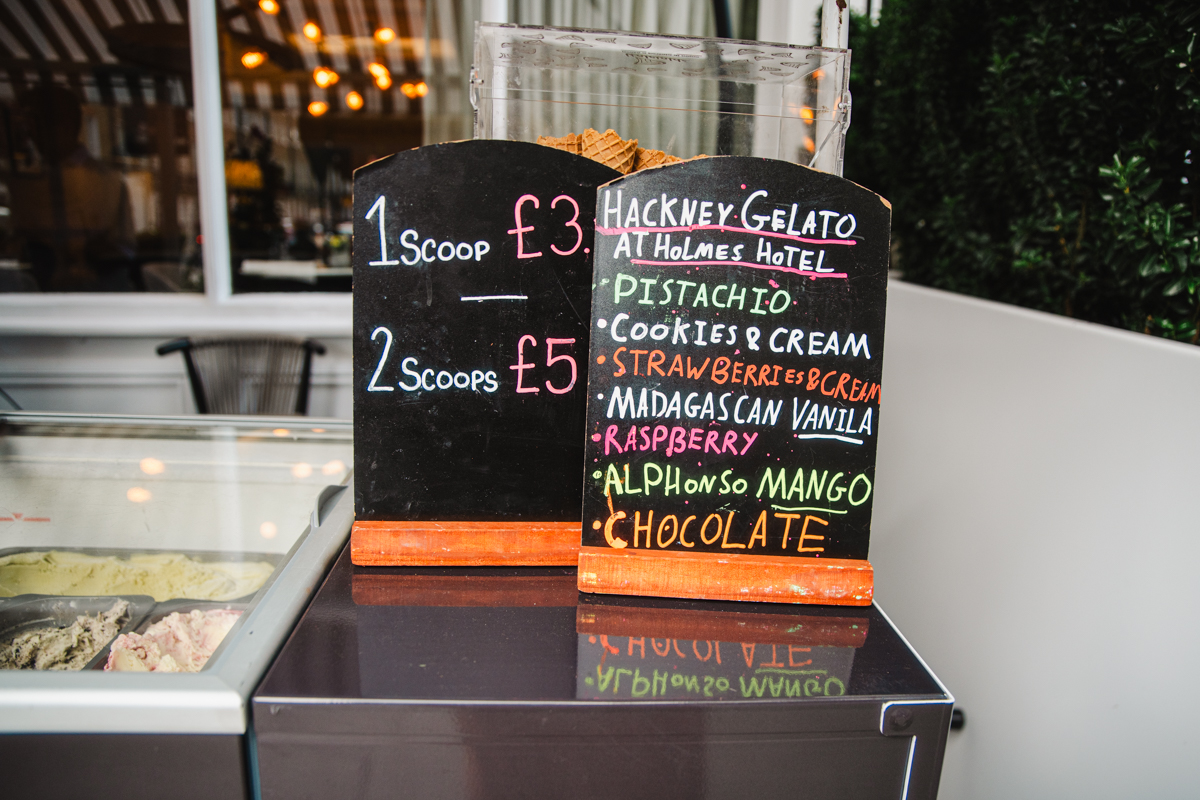 1 Scoop £3.
2 Scoops £5
HACKNEY GELATO
AT HOLMES HOTEL
PISTACHIO
• COOKIES & CREAM
• STRAWBERRIES & CREAM
• MADAGASCAN VANILA
• RASPBERRY
• ALPHONSO MANGO
• CHOCOLATE
CHOCOLATE
ALPHONSO MANGO